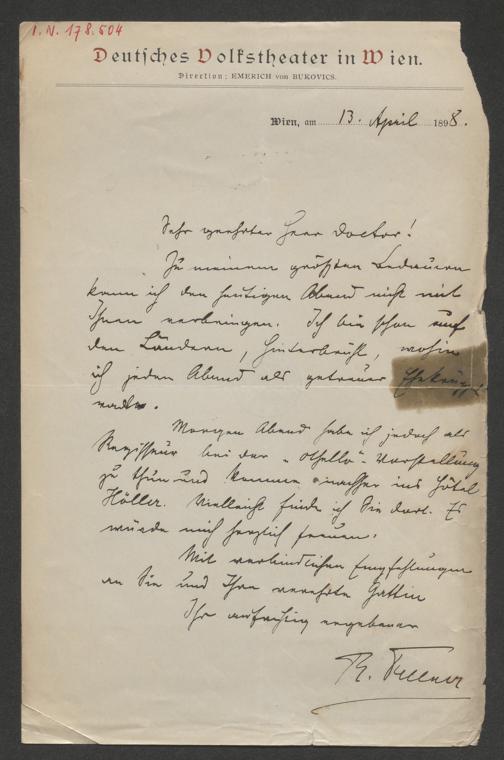 I.N. 178.504
Deutsches Volkstheater in Wien.
Direction: EMERICH von BUKOVICS.
Wien, am 13. April 1898.
Sehr geehrter Herr Doctor!
Zu meinem größten Bedauern
kann ich den heutigen Abend nicht mit
Ihnen verbringen. Ich bin schon auf
dem Lande, Hinterbrühl, wohin
ich jeden Abend als getreuer
Morgen Abend habe ich jedoch als
Regisseur bei der „Othello"-Vorstellung
zu thun und komme nachher ins Hôtel
Höller. Vielleicht finde ich Sie dort. Es
würde mich herzlich freuen.
Mit verbindlichen Empfehlungen
an Sie und Ihre verehrte Gattin
Ihr aufrichtig ergebener